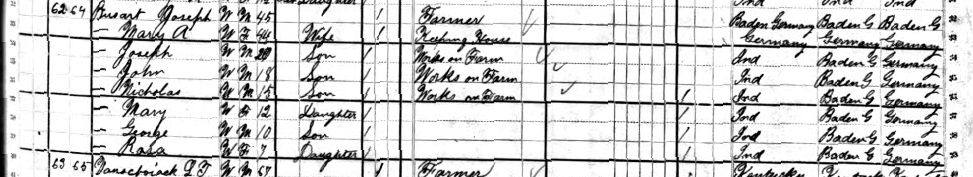 Daughter Ind Ind Ind
62 64 Busart Joseph W M 45 / Farmer Baden Germany Baden G Baden G
— Mary A W F 44 Wife / Keeping House Germany Germany Germany
— Joseph W M Son / Works on Farm Ind Baden G Germany
— John W M 18 Son / Works on Farm Ind Baden G Germany
— Nicholas W M 15 Son / Works on Farm / Ind Baden G Germany
— Mary W F 12 Daughter / / Ind Baden G Germany
— George W M 10 Son / / Ind Baden G Germany
— Rosa W F 7 Daughter / / Ind Baden G Germany
63 65 W M 67 / Farmer Kentucky